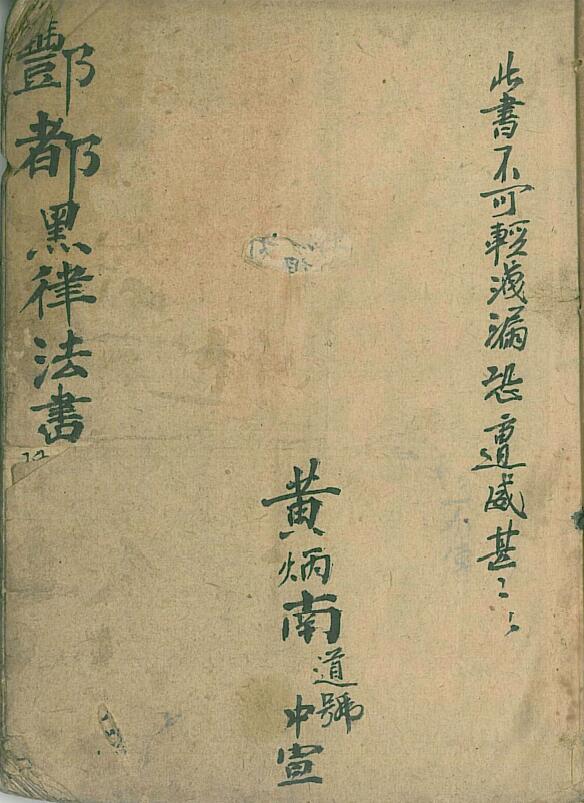 此書不可輕洩漏恐遭威甚〻
黃炳南道號
中宣
酆都黑律法書